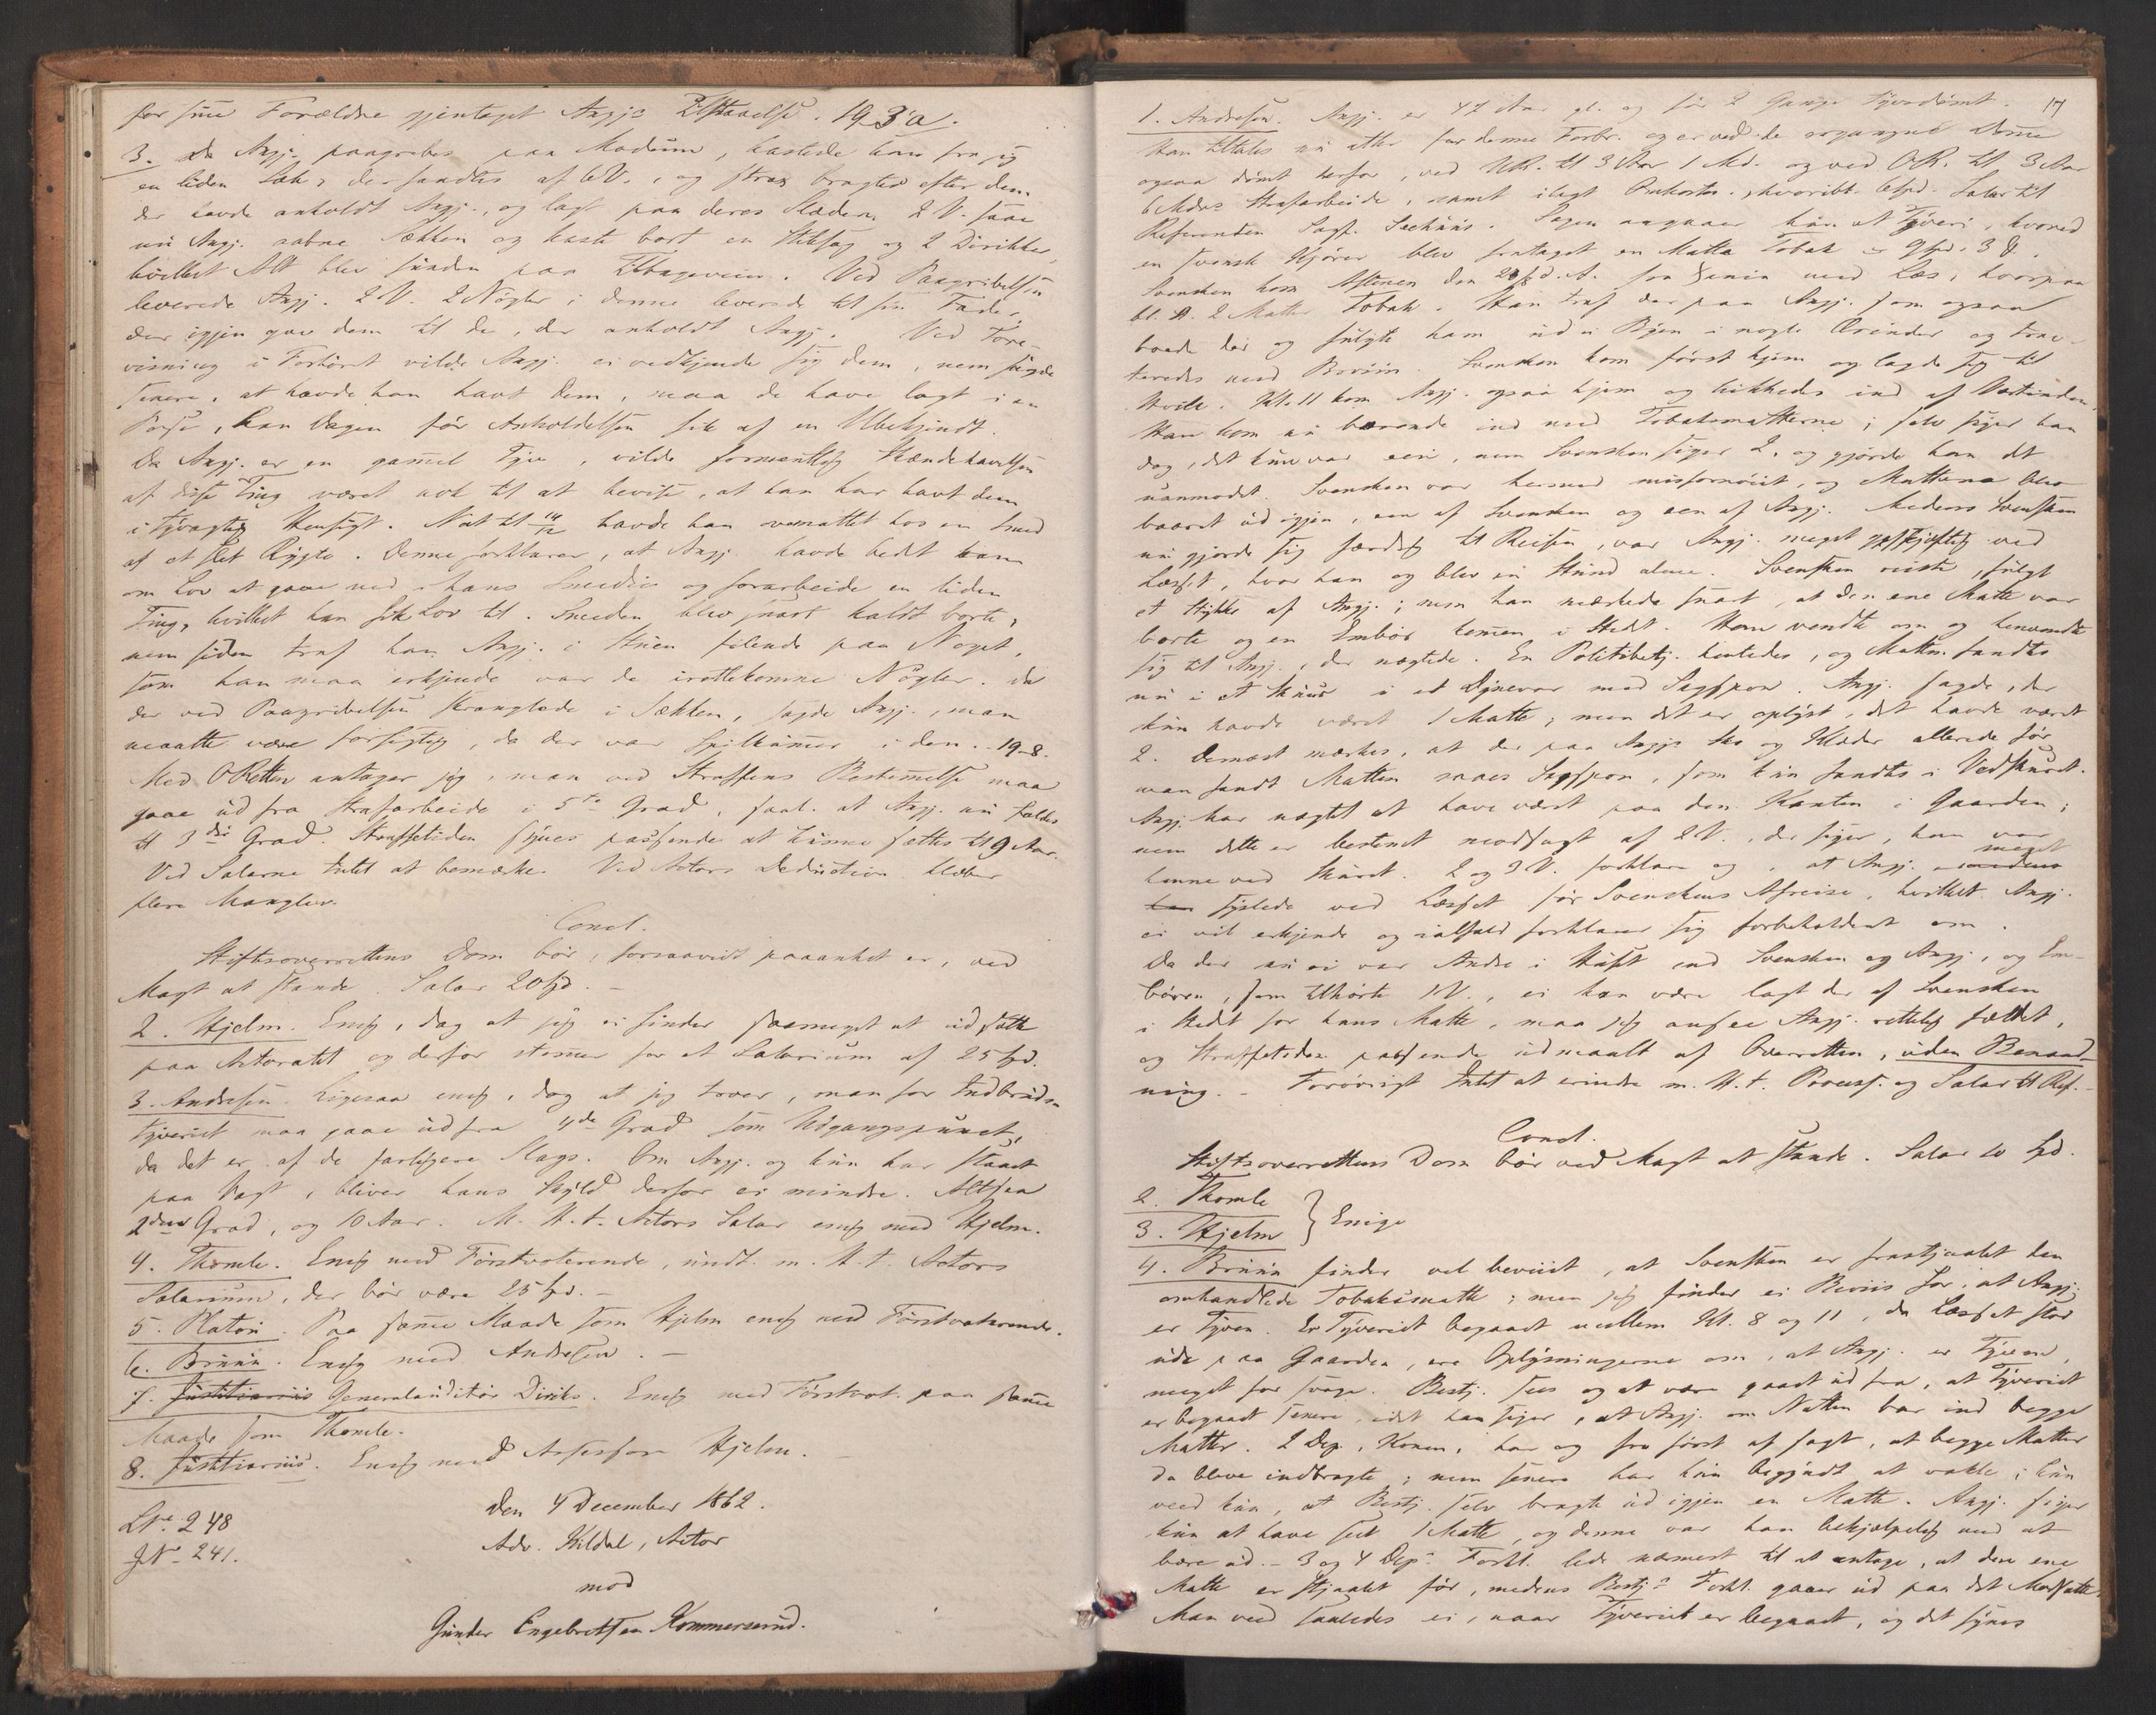 for sine Forældre gjentaget Angj.s Tilstaaelse. 19, 3'a.
3. Da Angj. paagrebes paa Modum, kastede han fra sig
en liden Sæk, der fandtes af 6 V., og strax bragtes efter dem.
der havde anholdt Angj., og lagt paa deres Slæde. 2 V. saae
nu Angj. aabne Sækken og kaste bort en Stiksag og 2 Dirikker,
hvilket Alt blev funden paa Tilbageveien. Ved Paagribelsen
leverede Angj. 2 V. 2 Nøgler; denne leverede til sin Fader,
der igjen gav dem til de, der anholdt Angj. Ved Fore-
visning i Forhøret vilde Angj. ei vedkjende sig dem, men sagde
senere, at havde han havt dem, maa de have lagt i en
Pose, han Dagen før Anholdelsen fik af en Ubekjendt.
Da Angj. er en gammel Tyv, vilde formentlig Ihændehavelsen
af disse Ting været nok til at bevise, at han har havt dem
i tyvagtig Hensigt. Nat til 14/12 havde han overnattet hos en Smed
af et slet Rygte. Denne forklarer, at Angj. havde bedt ham
om Lov at gaae ned i hans Smedie og forarbeide en liden
Ting, hvilket han fik Lov til. Smeden blev snart kaldt borte,
men siden traf han Angj. i Stuen filende paa Noget,
som han maa erkjende var de irettekomne Nøgler. Da
der ved Paagribelsen skranglede i Sækken, sagde Angj., man
maatte være forsigtig, da der var Spilkummer i den. 19-8.
Med ORetten antager jeg, man ved Straffens Bestemmelse maa
gaae ud fra Strafarbeide i 5te Grad, saal. at Angj. nu faldes
til 3die Grad. Straffetiden synes passende at kunne sættes til 9 Aar.
Ved Salerne Intet at bemærke. Ved Actors Deduction klæber
flere Mangler.
Concl.
Stiftsoverrettens Dom bør, forsaavidt paaanket er, ved
Magt at stande. Salar 20 Spd.
2. Hjelm. Enig, dog at jeg ei finder saameget at udsætte
paa Actoratet og derfor stemmer for et Salarium af 25 Spd.
3. Andresen. Ligesaa enig, dog at jeg troer, man for Indbruds-
tyveriet maa gaae ud fra 4de Grad som Udgangspunct,
da det er af de farligere Slags. Om Angj. og kun har staaet
paa Vagt, bliver hans Skyld derfor ei mindre. Altsaa
2den Grad, og 10 Aar. M. H. t. Actors Salar enig med Hjelm.
4. Thomle. Enig med Førstvoterende, undt. m. H. t. Actors
Salarium, der bør være 25 Spd.
5. Platou. Paa samme Maade som Hjelm enig med Førstvoterende.
6. Bruun. Enig med Andresen.
7. Justitiarius Generalauditør Diriks. Enig med Førstvot. paa samme
Maade som Thomle.
8. Justitiarius. Enig med Assessor Hjelm.
Den 4 December 1862.
LNr. 248
JNr. 241.
Adv. Kildal, Actor
mod
Gunder Engebretsen Kommersrud.
17
1. Andresen. Angj. er 47 Aar gl. og før 2 Gange Tyvsdømt.
Han tiltales nu atter for denne Forbr. og er ved de ergangne Domme
ogsaa dømt herfor, ved UR. til 3 Aar 1 Md. og ved OR. til 3 Aar
6 Mdrs Strafarbeide, samt ilagt Omkostn., hvoribl. 6 Spd. Salar til
Referenten Sagf. Seehuus. Sagen angaaer kun et Tyveri, hvorved
en svensk Kjører blev frataget en Matte Tobak = 9 Spd. 3 ß.
Svensken kom Aftenen den d. A. fra med Læs, hvorpaa
bl. A. 2 Matter Tobak. Han traf der paa Angj. som ogsaa
boede der og fulgte ham ud i Byen i nogle Ærinder og trac-
teredes med Brviin. Svensken kom først hjem og lagde sig til
Hvile. Kl. 11 kom Angj. ogsaa hjem og lukkedes ind af Værtinden.
Han kom nu bærende ind med Tobaksmatterne; selv siger han
dog, det kun var een, men Svensken siger 2, og gjorde han det
uanmodet. Svensken var hermed misfornøiet, og Matterne blev
baaret ud igjen, een af Svensken og een af Angj. Medens Svensken
nu gjorde sig færdig til Reisen, var Angj. meget geskjæftig ved
Læsset, hvor han og blev en Stund alene. Svensken reiste, fulgt
et Stykke af Angj.; men han mærkede snart, at den ene Matte var
borte og en Embær kommen i Stedet. Han vendte om og henvendte
sig til Angj., der nægtede. En Politibetj. hentedes, og Matten fandtes
nu i et Skuur i et Dynevar med Sagspon. Angj. sagde, der
kun havde været 1 Matte; men det er oplyst, det havde været
2. Dernæst mærkes, at der paa Angj.s Sko og Klæder allerede før
man fandt Matten saaes Sagspon, som kun fandtes i Vedskuret.
Angj. har nægtet at have vært paa den Kanten i Gaarden;
men dette er bestemt modsagt af 2 V., der siger, han var
henne ved Skuret. 2 og 3 V. forklare og, at Angj. medens meget
han syslede ved Læsset før Svenskens Afreise, hvilket Angj.
ei vil erkjende og ialfald forklarer sig forbeholdent om.
Da der nu ei var Andre i Huset end Svensken og Angj., og Em-
bæren, som tilhørte 1 V., ei kan være lagt der af Svensken
i Stedet for hans Matte, maa jeg ansee Angj. rettelig fældet,
og Straffetiden passende udmaalt af Overretten, uden Benaad-
ning. Forøvrigt Intet at erindre m. H. t. Process. og Salar til Ref.
Concl.
Stiftsoverrettens Dom bør ved Magt at stande. Salar 10 Spd.
2. Thomle
3. Hjelm } Enige
4. Bruun finder vel beviist, at Svensken er frastjaalet den
omhandlede Tobaksmatte; men jeg finder ei Beviis for, at Angj.
er Tyven. Er Tyveriet begaaet mellem Kl. 8 og 11, da Læsset stod
ude paa Gaarden, ere Oplysningerne om, at Angj. er Tyven,
meget for svage. Bestj. sees og at være gaaet ud fra, at Tyveriet
er begaaet senere, idet han siger, at Angj. om Natten bar ind begge
Matter. 2 Dep., Konen, har og fra først af sagt, at begge Matter
da bleve indbragte; men senere har hun begyndt at vakle; hun
veed kun, at Bestj. selv bragte ud igjen en Matte. Angj. siger
kun at have seet 1 Matte, og denne var han behjælpelig med at
bære ud. – 3 og 4 Dep.s Forkl. lede nærmest til at antage, at den ene
Matte er stjaalet før, medens Bestj.s Forkl. gaaer ud paa det Modsatte.
Man veed saaledes ei, naar Tyveriet er begaaet, og det synes